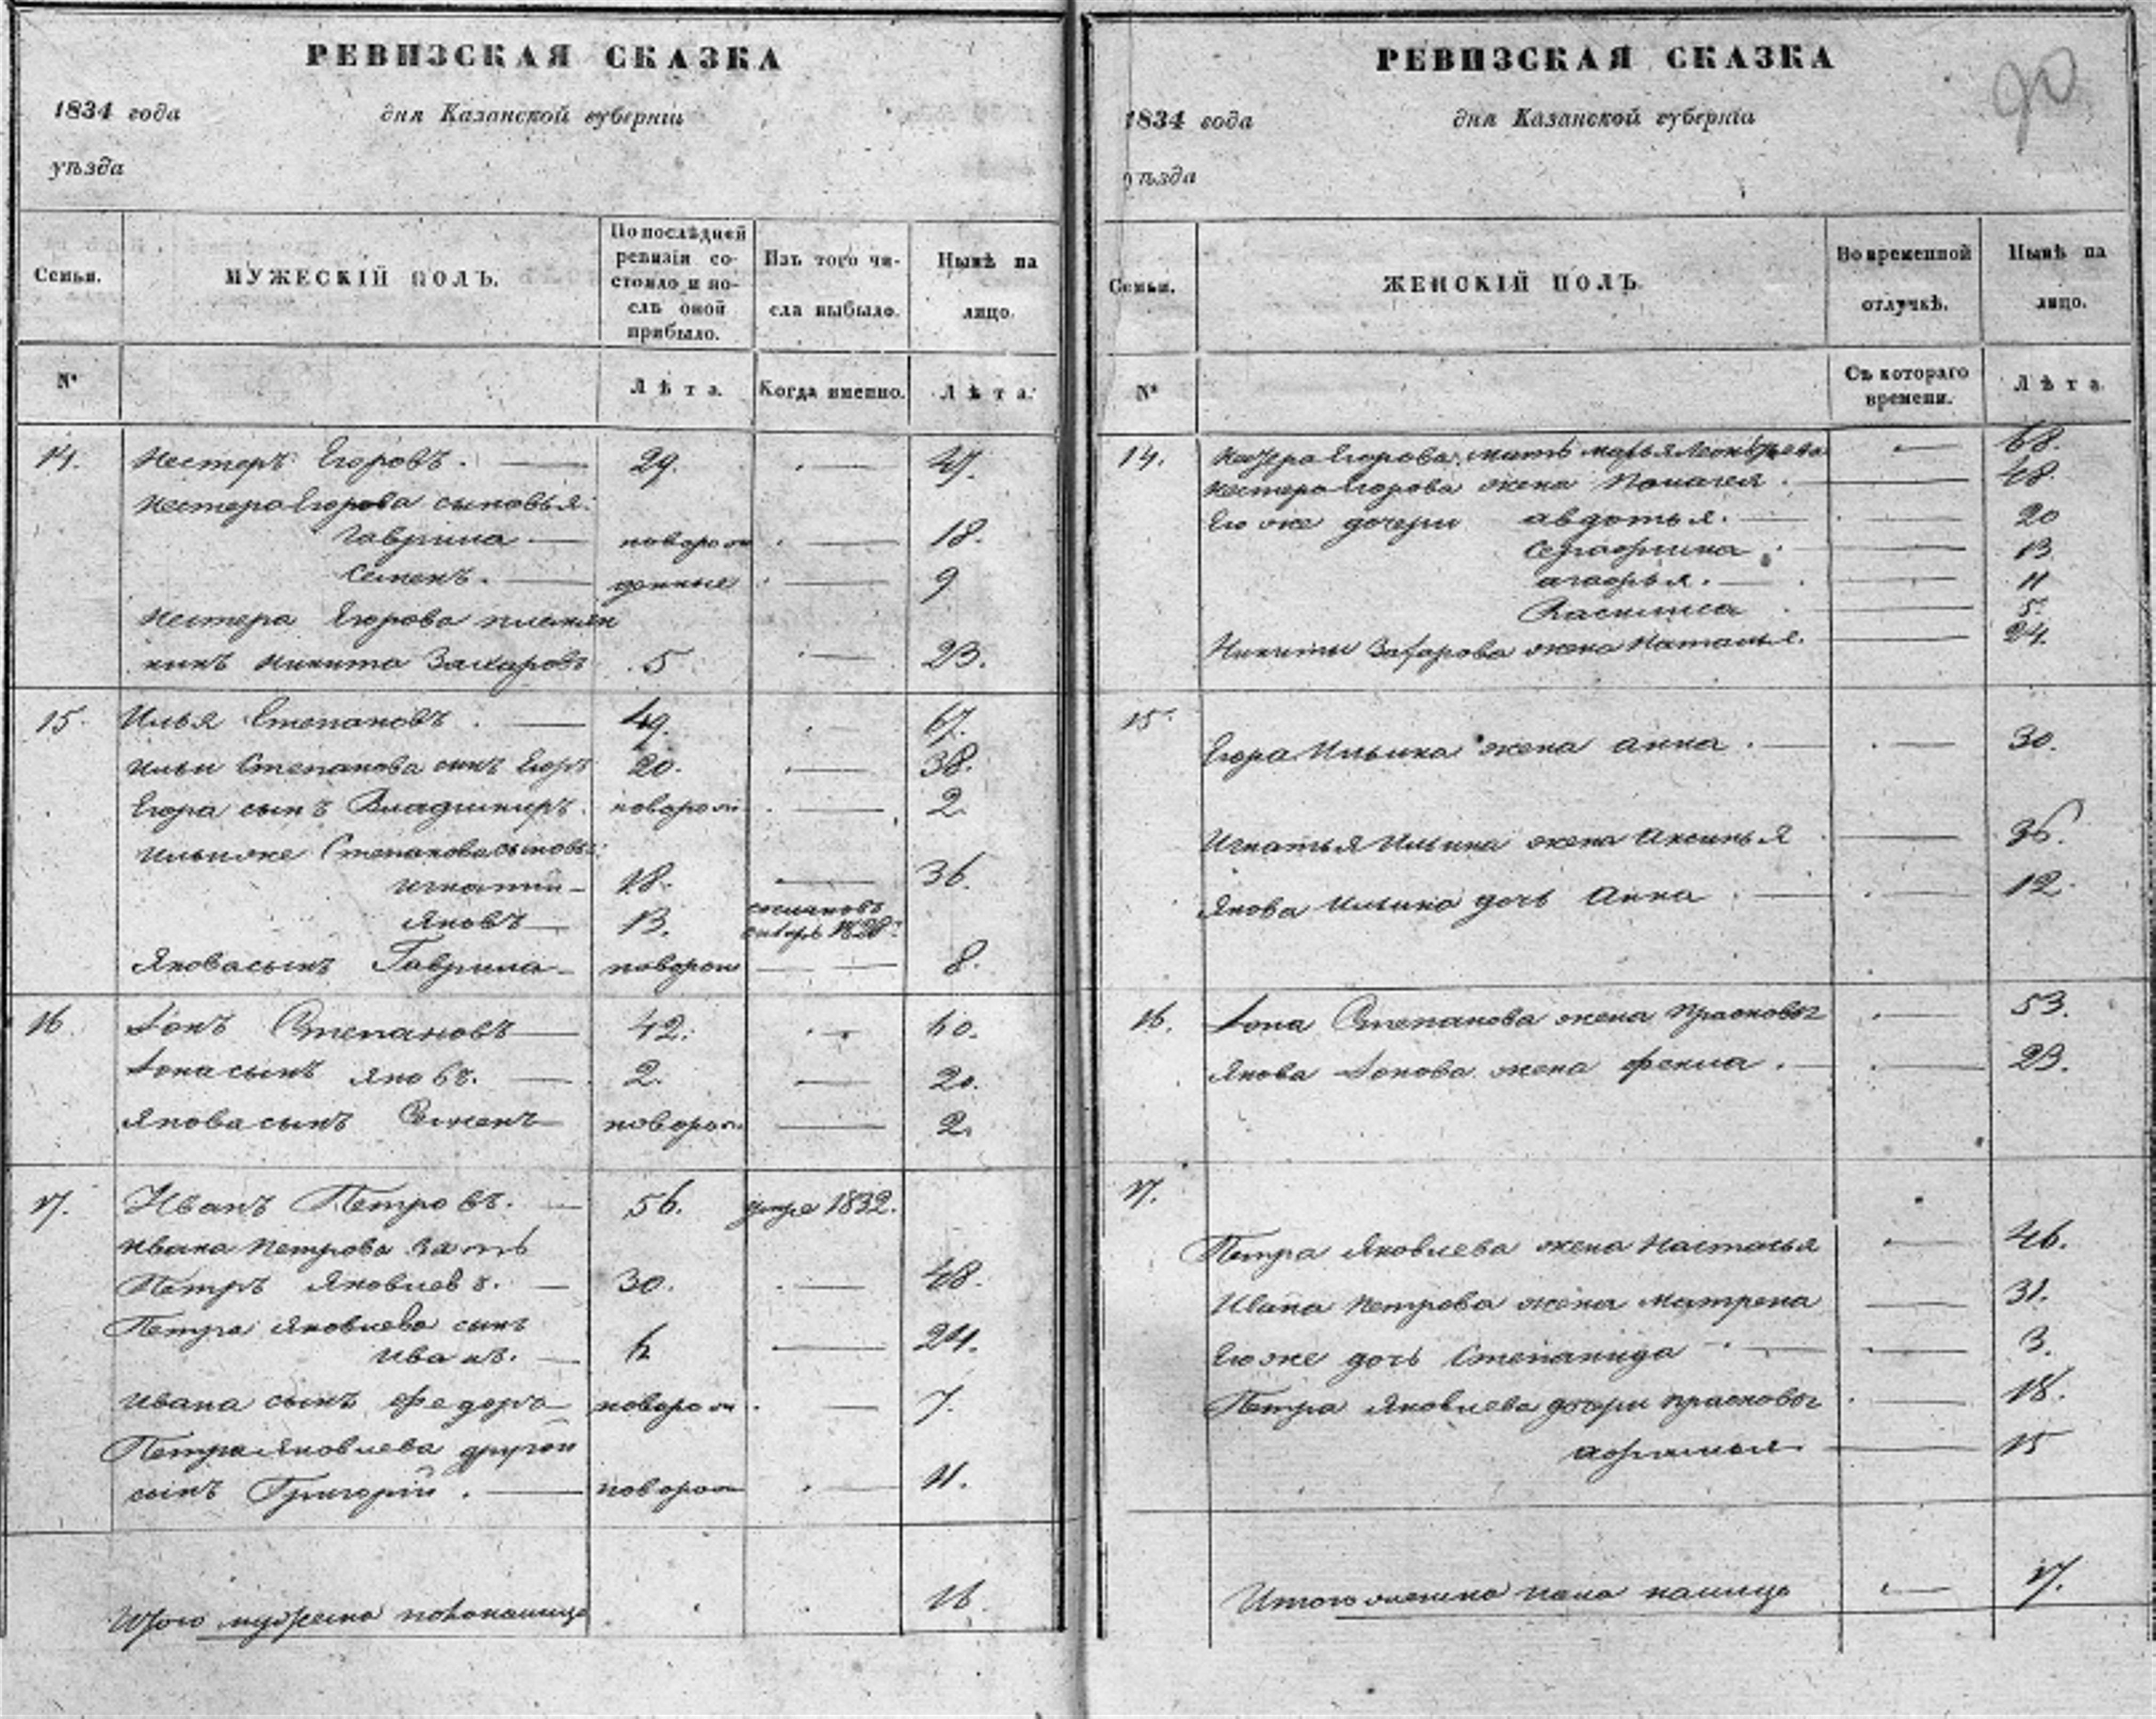 РЕВИЗСКАЯ СКАЗКА
1834 года дня Казанской губерніи
уѣзда
Семьи.
МУЖЕСКІЙ ПОЛЪ.
По послѣдней ревизіи состояло и послѣ оной прибыло.
Изъ того числа выбыло.
Нынѣ на лицо.
№
Лѣта.
Когда именно.
Лѣта.
14. Нестеръ Егоровъ. 29. 47.
Нестера Егорова сыновья:
Гаврила новорож 18.
Семенъ. денные 9
Нестера Егорова племян
никъ Никита Захаровъ 5 23.
15. Илья Степановъ. 49. 67.
Ильи Степанова сынъ Егоръ 20. 38.
Егора сынъ Владимиръ. новорож 2.
Ильи же Степанова сыновья:
Игнатий 18. 36.
Яковъ 13. 1828
Якова сынъ Гаврила новорож 8.
16. Степановъ 42. 60.
сынъ Яковъ. 2. 20.
Якова сынъ Семенъ новорож 2.
17. Иванъ Петровъ. 56. умре 1832.
Ивана Петрова зять
Петръ Яковлевъ. 30. 48.
Петра Яковлева сынъ
Иванъ. 6 24.
Ивана сынъ Федоръ новорож 7.
Петра Яковлева другой
сынъ Григорий. новорож 11.
Итого мужеска пола налицо 16.
РЕВИЗСКАЯ СКАЗКА
90
1834 года дня Казанской губерніи
уѣзда
Семьи.
ЖЕНСКІЙ ПОЛЪ.
Во временной отлучкѣ.
Нынѣ на лицо.
№
Съ котораго времени.
Лѣта
14. Егорова мать Марья 68.
Нестера Егорова жена Пелагея. 48.
Его же дочери Авдотья. 20
13
Агафья. 11
Василиса 5.
Никиты Захарова жена Наталья. 24.
15.
Егора Ильина жена Анна. 30.
Игнатья Ильина жена Аксинья 36.
Якова Ильина дочь Анна 12
16. Степанова жена Прасковья 53.
Якова жена Фекла. 23.
17.
Петра Яковлева жена Настасья 46.
Ивана Петрова жена Матрена 31.
Его же дочь Степанида 3.
Петра Яковлева дочери Прасковья 18.
15
Итого женска пола налицо 17.